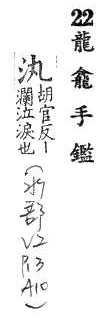 22 龍龕手鑑
汍 胡官反｜
瀾泣淚也
(水部 V2 P13 A10)